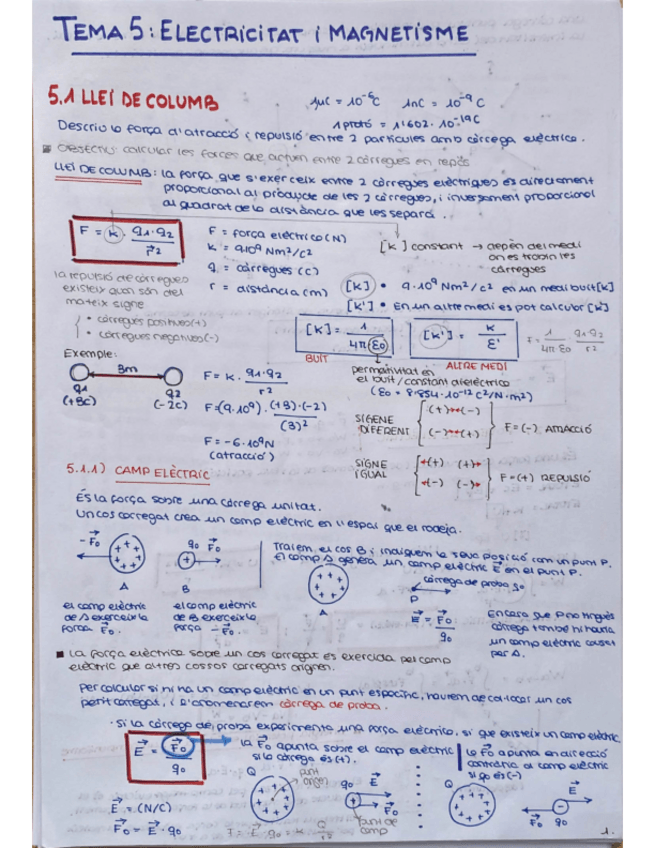 TEMA 5: ELECTRICITAT i MAGNETISME
5.1 LLEI DE COLUMB
1µC = 10⁻⁶C 1nC = 10⁻⁹ C
1 protó = 1'602. 10⁻¹⁹C
Descriu la força d'atracció i repulsió entre 2 partícules amb càrrega elèctrica.
OBJECTIU: calcular les forces que actuen entre 2 càrregues en repòs
LLEI DE COLUMB: la força que s'exerceix entre 2 càrregues elèctriques és directament
proporcional al producte de les 2 càrregues, i inversament proporcional
al quadrat de la distància que les separa.
F = k. q1.q2 / r²
F = força elèctrica (N)
k = 9.10⁹ Nm²/c²
q = càrregues (C)
r = distància (m)
[k] constant → depèn del medi
on es trobin les
càrregues
[k] • 9.10⁹ Nm²/c² en un medi buit [k]
[k'] • En un altre medi es pot calcular [k']
la repulsió de càrregues
existeix quan són del
mateix signe
• càrregues positives (+)
• càrregues negatives (-)
[k] = 1 / 4π(ε0)
BUIT
[k'] = k / ε'
ALTRE MEDI
F = 1 / 4π.ε0 . q1.q2 / r²
permitivitat en
el buit / constant dielèctrica
(ε0 = 8'854.10⁻¹² c²/N.m²)
Exemple:
3m
q1 q2
(+3C) (-2C)
F = k. q1.q2 / r²
F = (9.10⁹). (+3).(-2) / (3)²
F = -6.10⁹N
(atracció)
SIGNE
DIFERENT
(+)→←(-)
(-)→←(+)
F = (-) ATRACCIÓ
SIGNE
IGUAL
←(+) (+)→
←(-) (-)→
F = (+) REPULSIÓ
5.1.1) CAMP ELÈCTRIC
És la força sobre una càrrega unitat.
Un cos carregat crea un camp elèctric en l'espai que el rodeja.
-F0 q0 F0
A B
el camp elèctric
de A exerceix la
força F0.
el camp elèctric
de B exerceix la
força -F0.
Traiem el cos B i indiquem la seva posició com un punt P.
El camp A genera un camp elèctric E en el punt P.
càrrega de prova q0
P
A
E = F0 / q0
Encara que P no tingués
càrrega també hi hauria
un camp elèctric causat
per A.
■ La força elèctrica sobre un cos carregat és exercida pel camp
elèctric que altres cossos carregats originen.
Per calcular si hi ha un camp elèctric en un punt específic, haurem de col·locar un cos
petit carregat, i l'anomenarem càrrega de prova.
· Si la càrrega de prova experimenta una força elèctrica, sí que existeix un camp elèctric
E = F0 / q0
la F0 apunta sobre el camp elèctric
si la càrrega és (+).
la F0 apunta en direcció
contrària al camp elèctric
si q0 és (-)
E = (N/C)
F0 = E . q0
Q punt origen q0 E
F0
punt de
camp
Q E
F0 q0
1.